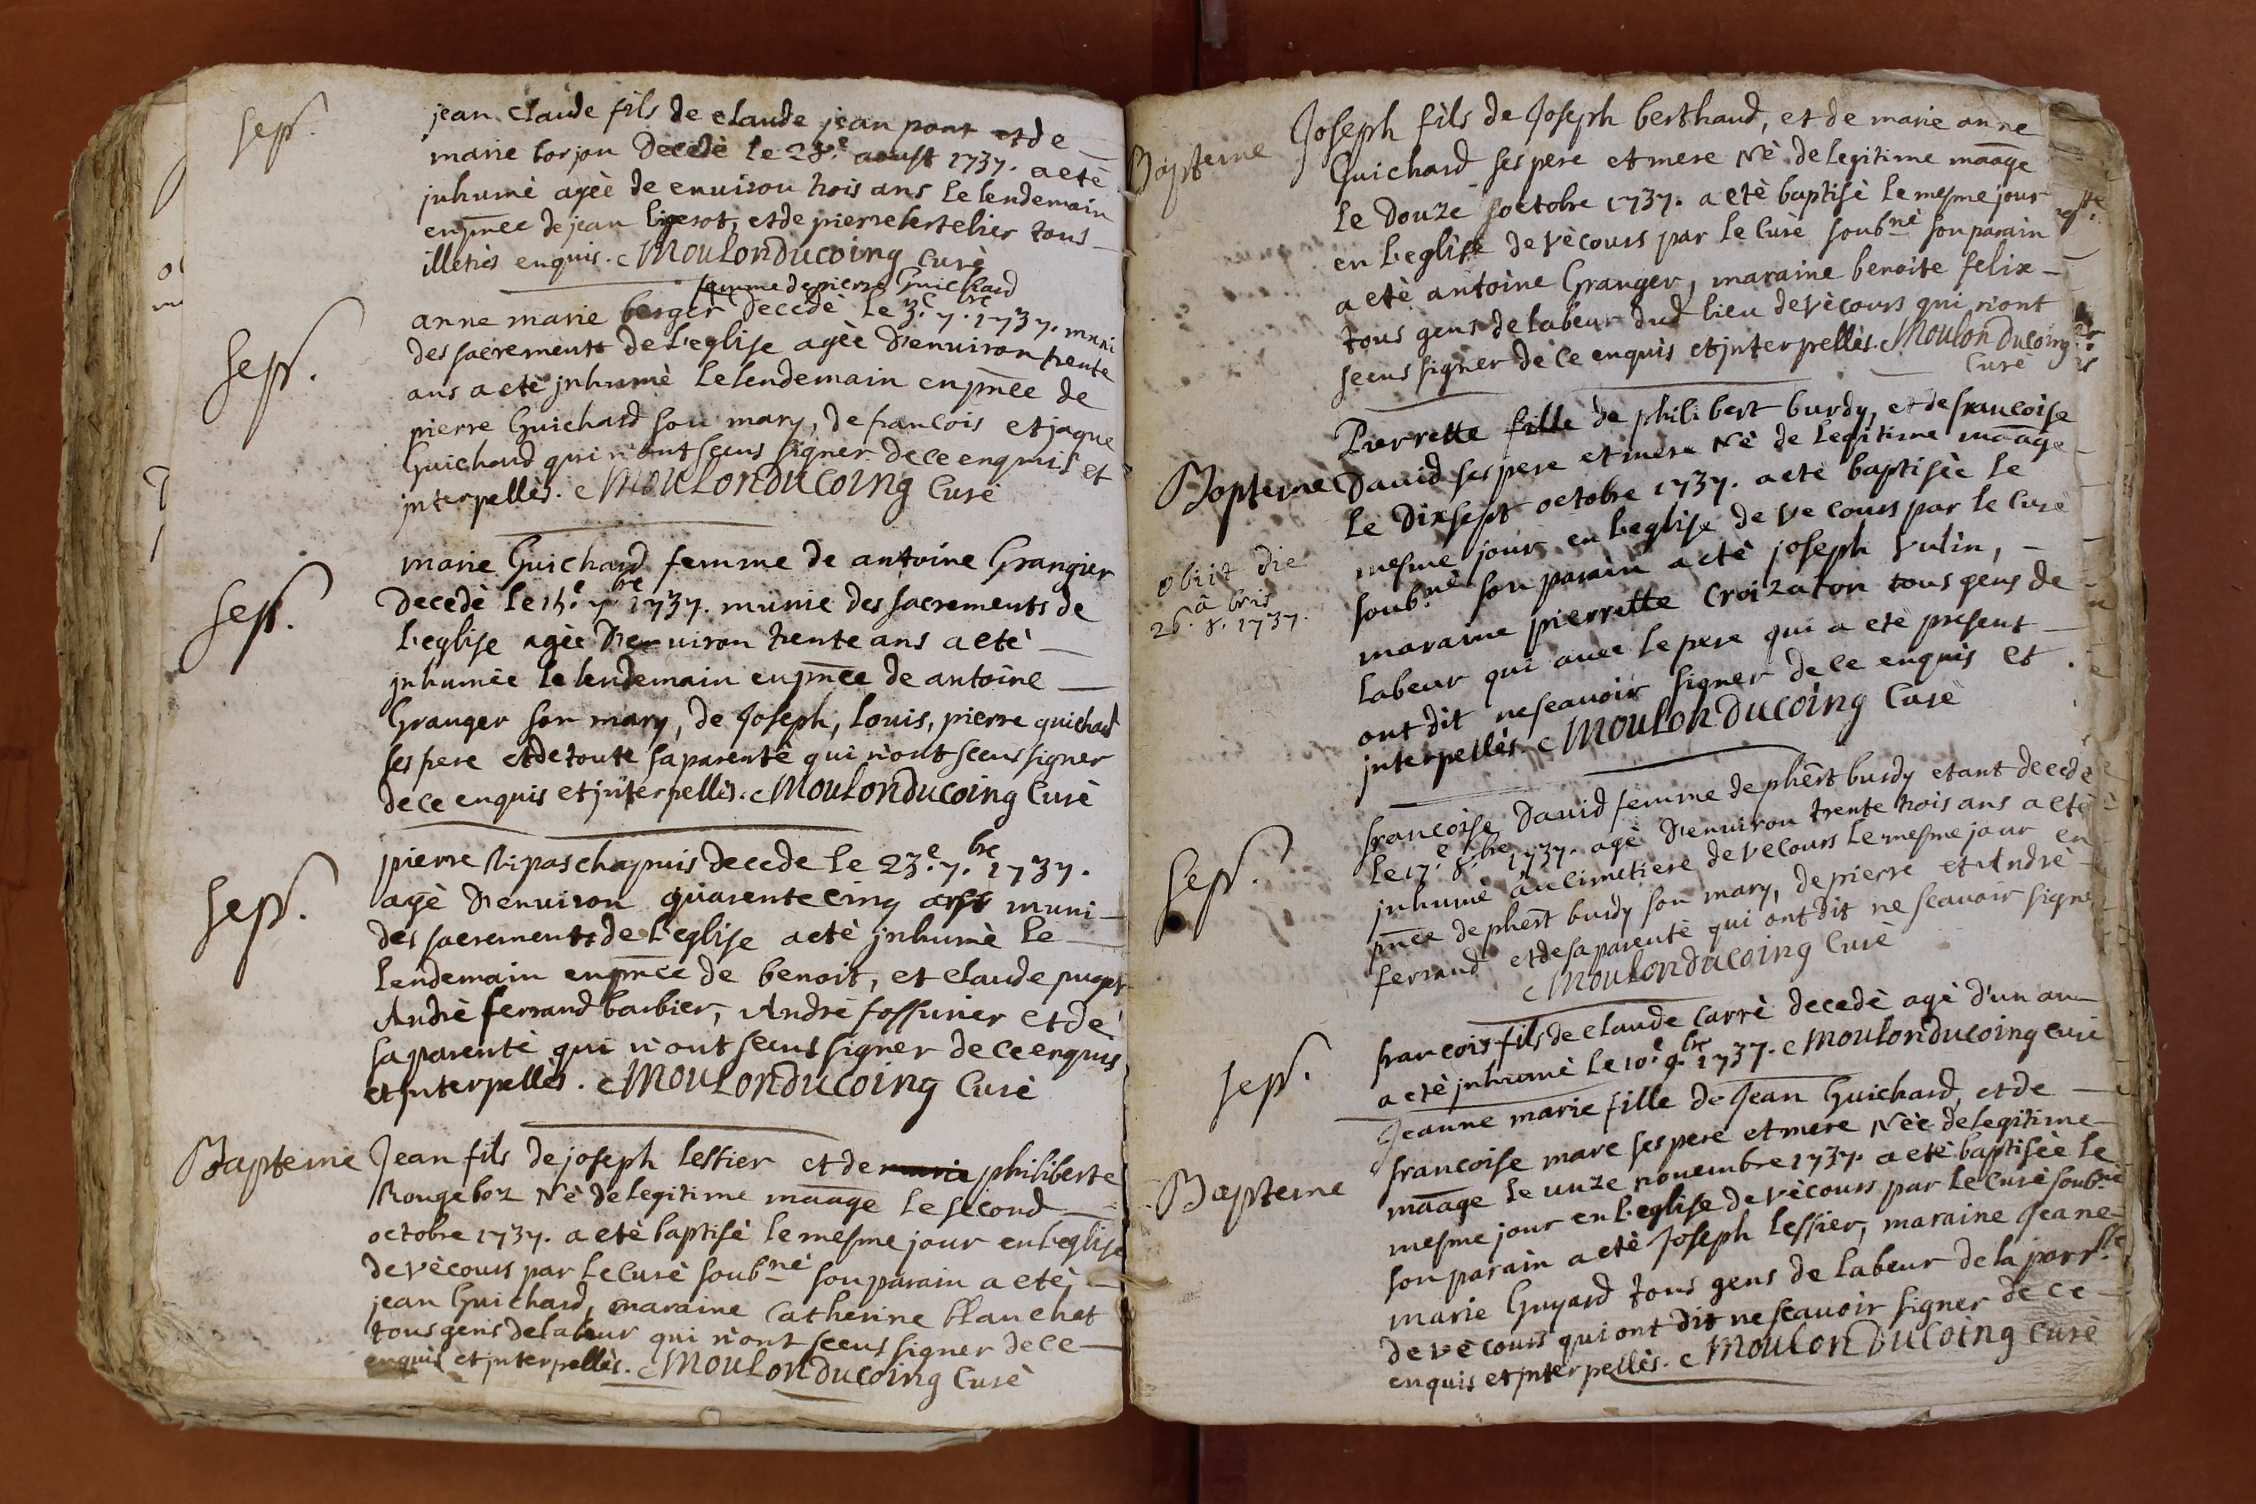 sep.
jean claude fils de claude jean pont et de
marie borjon decedè le 28.e aoust 1737. a etè
jnhumè agèe de enuiron trois ans le lendemain
en pñce de jean ligerot, et de pierre bertelier tous
illetiès enquis. Moulonducoing curè
femme de pierre Guichard
sep.
anne marie berger decedè le 3.e 7.bre 1737. muni
des sacrements de l'eglise agèe d'enuiron trente
ans a etè jnhumè le lendemain en pñce de
pierre Guichard son mary, de francois et jaque
Guichard qui n'ont sceus signer de ce enquis et
jnterpellès. Moulonducoing Curè
sep.
marie Guichard femme de antoine Grangier
decedè le 15.e 7.bre 1737. munie des sacrements de
l'eglise agèe d'enuiron trente ans a etè
jnhumèe le lendemain en pñce de antoine
Granger son mary, de Joseph, louis, pierre guichard
ses pere et de toute sa parentè qui n'ont sceus signer
de ce enquis et jnterpellès. Moulonducoing Curè
sep.
pierre Ripaschapuis decede le 23.e 7.bre 1737.
agè d'enuiron quarente cinq ans muni
des sacrements de l'eglise a etè jnhumè le
lendemain en pñce de benoit, et claude puget
Andrè ferrand barbier, Andrè fossurier et de
sa parentè qui n'ont sceus signer de ce enquis
et jnterpellès. Moulonducoing Curè
Bapteme
Jean fils de joseph lessier et de marie philiberte
Rougeboz Nè de legitime maage le second
octobre 1737. a etè baptisè le mesme jour en l'eglise
de vècours par le Curè soub.nè son parain a etè
jean Guichard, maraine Catherine blanchet
tous gens de labeur qui n'ont sceus signer de ce
enquis et jnterpellès. Moulonducoing Curè
Bapteme
Joseph fils de Joseph berthaud, et de marie anne
Guichard ses pere et mere Nè de legitime maage
le douze octobre 1737. a etè baptisè le mesme jour
en l'eglise de vècours par le Curè soub.nè son parain
a etè antoine Granger, maraine benoite felix
tous gens de labeur dud lieu de vècours qui n'ont
sceus signer de ce enquis et jnterpellès. Moulonducoing
Curè
Bapteme
Pierrette fille de philibert burdy, et de francoise
David ses pere et mere Nè de legitime maage
le dixsept octobre 1737. a etè baptisèe le
mesme jour en l'eglise de vecours par le Curè
soub.nè son parain a etè joseph vulin,
maraine pierrette Croizaton tous gens de
labeur qui auec le pere qui a etè present
ont dit ne scauoir signer de ce enquis et
jnterpellès. Moulonducoing Curè
obiit die
26.a 8.bris 1737.
Sep.
francoise David femme de phẽrt burdy etant decedè
le 17.e 8.bre 1737. agè d'enuiron trente trois ans a etè
jnhumè au cimetiere de vecours le mesme jour en
pñce de phẽrt burdy son mary, de pierre et Andrè
ferrand et de sa parentè qui ont dit ne scauoir signer
Moulonducoing Curè
sep.
francois fils de claude carrè decedè agè d'un an
a etè jnhumè le 10.e 9.bre 1737. Moulonducoing curè
Bapteme
Jeanne marie fille de Jean Guichard, et de
francoise mare ses pere et mere Nèe de legitime
maage le unze nouembre 1737. a etè baptisèe le
mesme jour en l'eglise de vècours par le Curè soub.nè
son parain a etè Joseph lessier, maraine Jeane
marie Guyard tous gens de labeur de la parr.sse
de vècours qui ont dit ne scauoir signer de ce
enquis et jnterpellès. Moulonducoing Curè